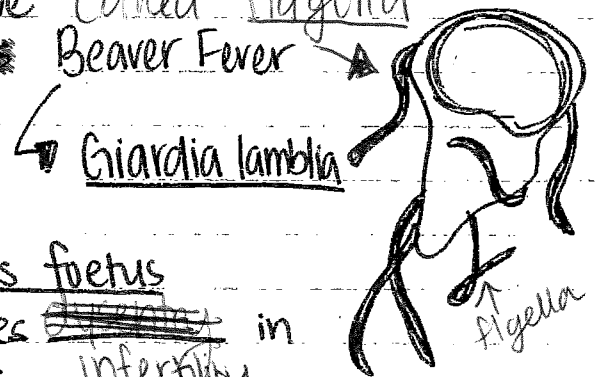 called flagella
Beaver Fever
Giardia lamblia
s foetus
es in
infertility
flgella